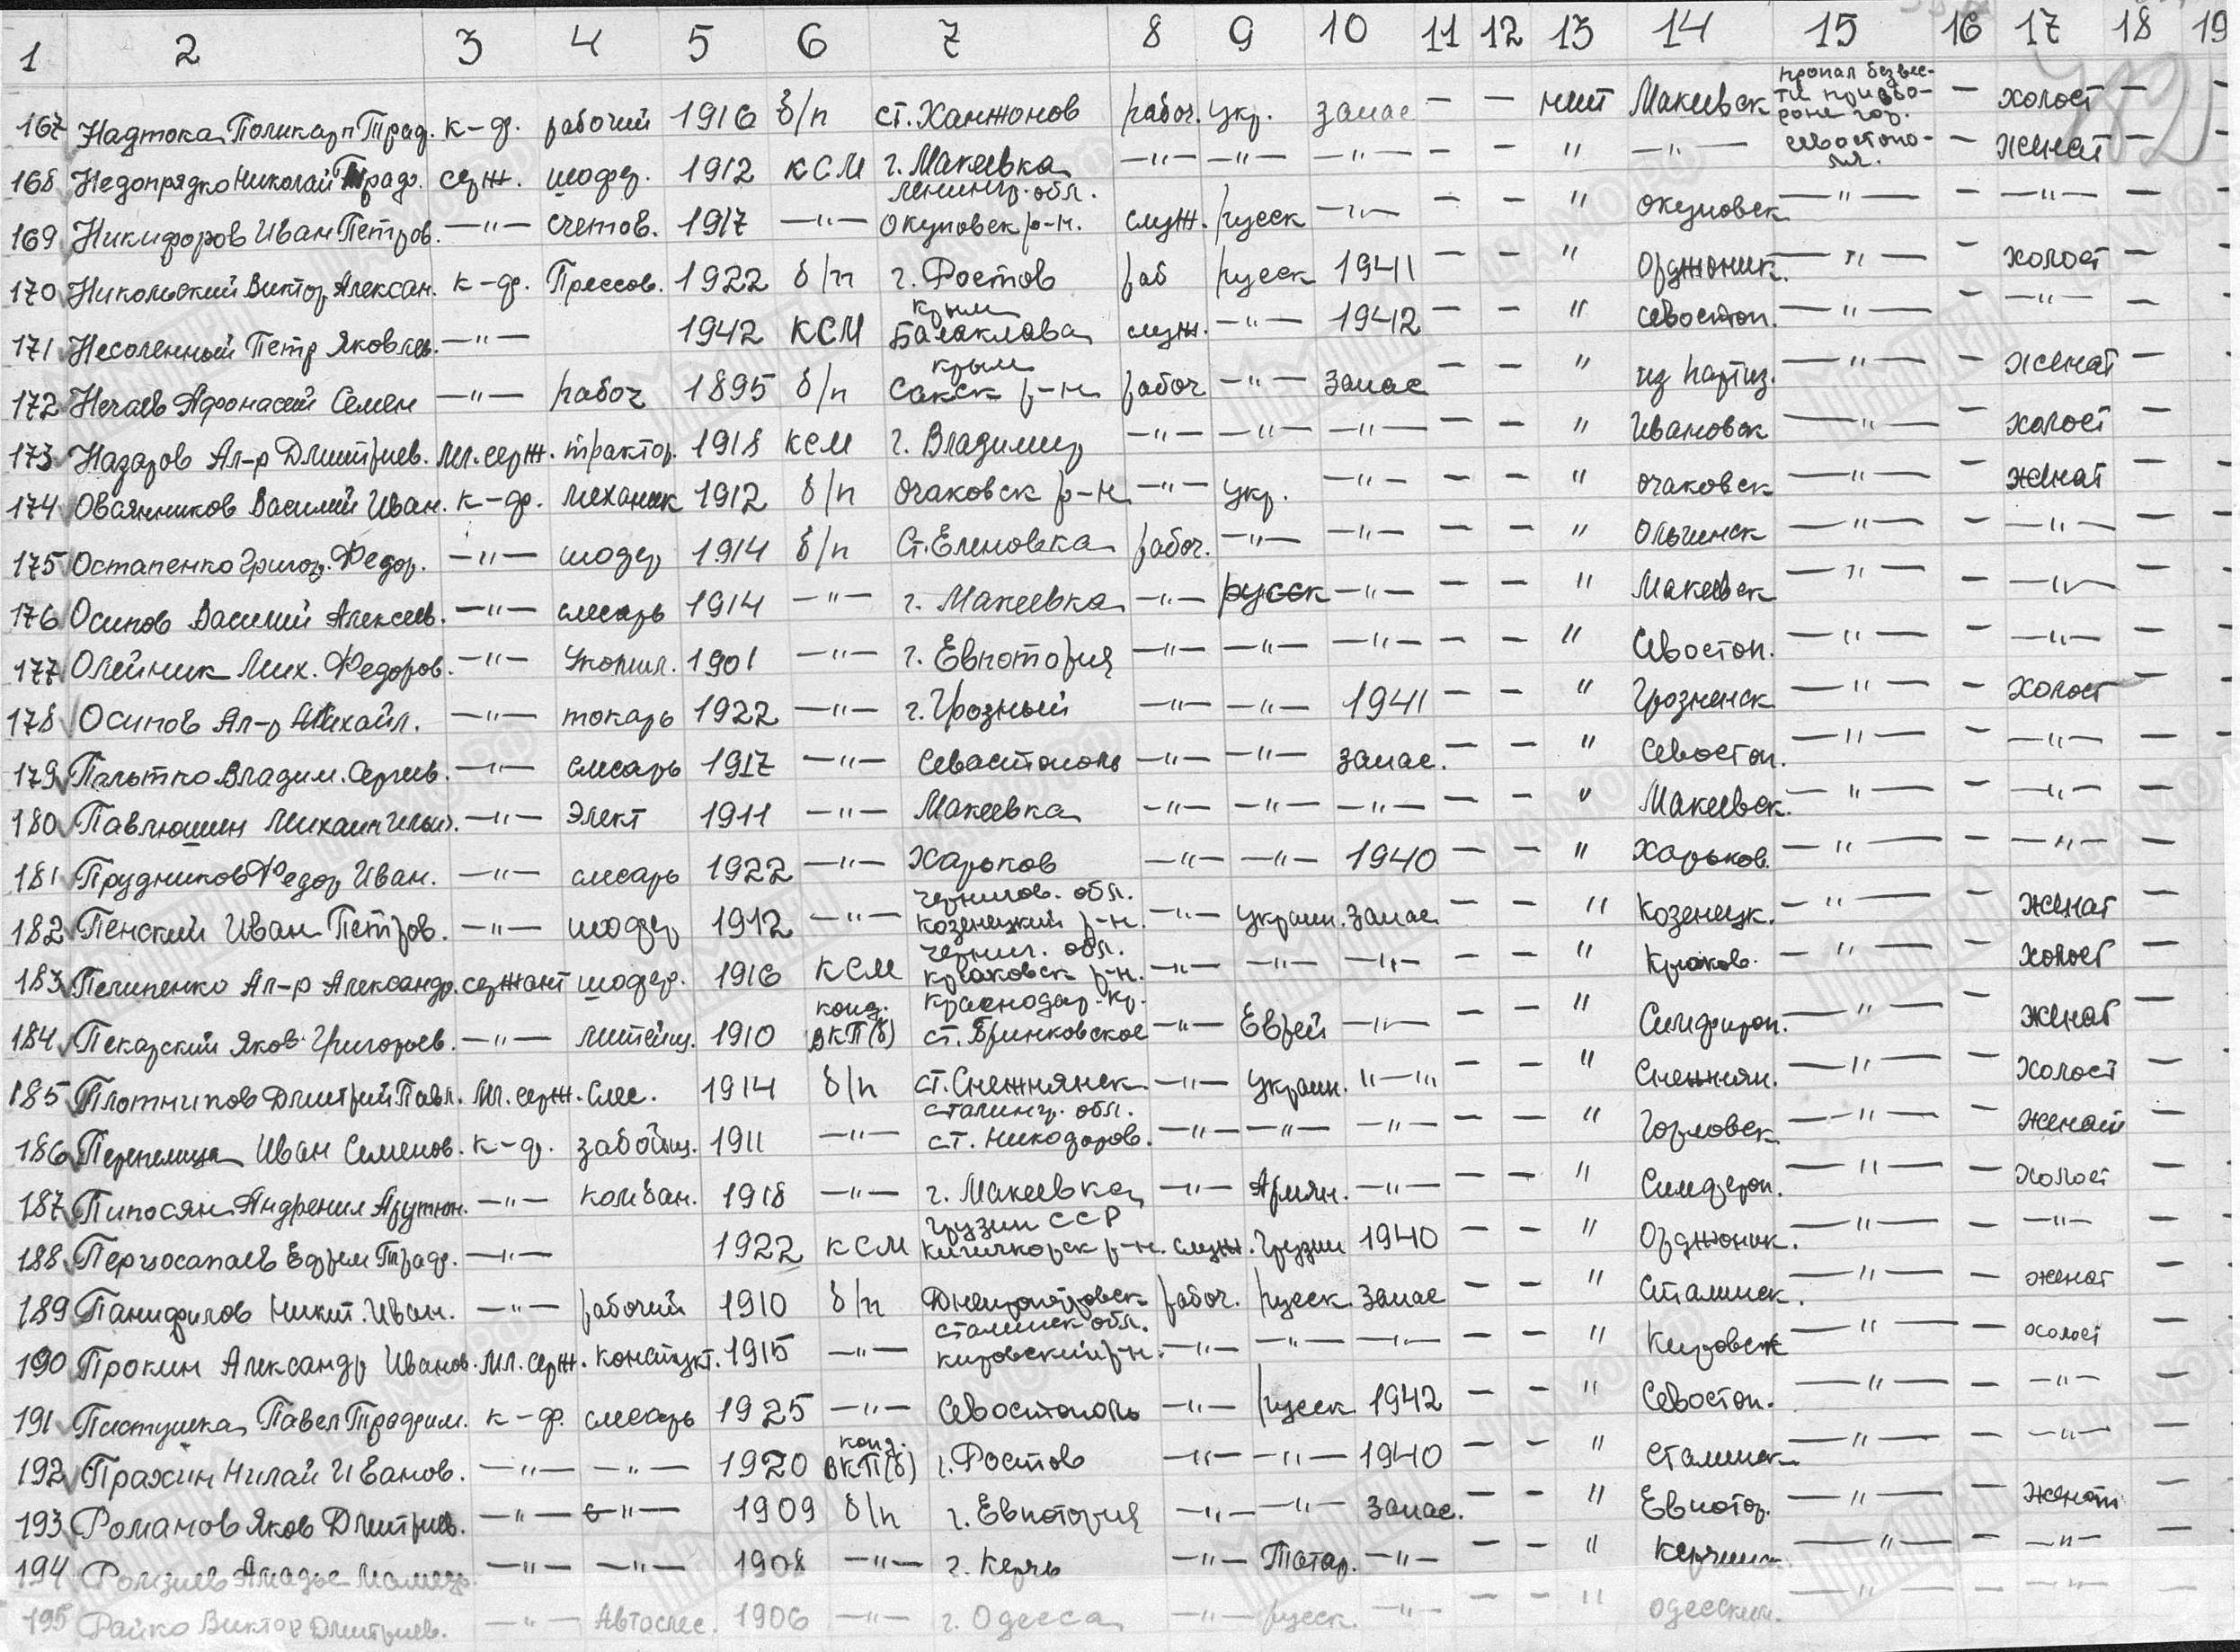 1 2 3 4 5 6 7 8 9 10 11 12 13 14 15 16 17 18 19
167 Надтока Поликарп Траф. к-ф. рабочий 1916 б/п ст. Ханжонов рабоч. укр. запас — — нет Макеевск пропал безвес-ти при обо-роне гор. Севостопо-ля. — холост —
168 Недопрядко Николай Траф. серж. шофер. 1912 КСМ г. Макеевка —"— —"— —"— — — " —"— — женат —
169 Никифоров Иван Петров. —"— счетов. 1917 —"— Ленингр. обл. Окуловск р-н. служ. русск —"— — — " Окуловск —"— — —"— —
170 Никольский Виктор Алексан. к-ф. Прессов. 1922 б/п г. Ростов раб русск 1941 — — " Орджоник. —"— — холост —
171 Несоленный Петр Яковлев. —"— 1942 КСМ Крым Балаклава служ. —"— 1942 — — " Севостоп. —"— — —"— —
172 Нечаев Афонасий Семен —"— рабоч 1895 б/п Крым Сакск р-н рабоч —"— запас — — " из партиз. —"— — женат —
173 Назаров Ал-р Дмитриев. мл. серж. трактор. 1918 КСМ г. Владимир —"— —"— —"— — — " Ивановск —"— — холост —
174 Овсянников Василий Иван. к-ф. механик 1912 б/п Очаковск р-н —"— укр. —"— — — " Очаковск —"— — женат —
175 Остапенко Григор. Федор. —"— шофер 1914 б/п Ст. Еленовка рабоч. —"— —"— — — " Ольгинск —"— — —"— —
176 Осипов Василий Алексеев. —"— слесарь 1914 —"— г. Макеевка —"— русск —"— — — " Макеевск —"— — —"— —
177 Олейник Мих. Федоров. —"— 1901 —"— г. Евпотория —"— —"— —"— — — " Севостоп. —"— — —"— —
178 Осипов Ал-р Михайл. —"— токарь 1922 —"— г. Грозный —"— —"— 1941 — — " Грозненск —"— — холост —
179 Пальтко Владим. Сергеев. —"— слесарь 1917 —"— Севастополь —"— —"— запас. — — " Севостоп. —"— — —"— —
180 Павлюшин Михаил —"— Элект 1911 —"— Макеевка —"— —"— —"— — — " Макеевск. —"— — —"— —
181 Прудников Федор Иван. —"— слесарь 1922 —"— Харьков —"— —"— 1940 — — " Харьков. —"— — —"— —
182 Пенский Иван Петров. —"— шофер 1912 —"— Чернигов. обл. Козенецкий р-н. —"— украин. запас — — " Козенецк. —"— — женат —
183 Пелипенко Ал-р Александр. сержант шофер. 1916 КСМ Черниг. обл. р-н. —"— —"— —"— — — " —"— — холост —
184 Пекарский Яков Григорьев. —"— литейщ. 1910 конд. ВКП(б) Краснодар. кр. ст. Бринковское —"— Еврей —"— — — " Симфироп. —"— — женат —
185 Плотников Дмитрий Павл. мл. серж. Слес. 1914 б/п ст. Снежнянск —"— украин. "—" — — " Снежнян. —"— — Холост —
186 Перепелица Иван Семенов. к-ф. забойщ. 1911 —"— Сталингр. обл. ст. Никофоров. —"— —"— —"— — — " Горловск —"— — женат —
187 Пипосян Андреник Арутюн. —"— комбан. 1918 —"— г. Макеевка —"— Армян. —"— — — " Симфероп. —"— — Холост —
188 Ефрем Траф. —"— 1922 КСМ Грузин ССР р-н. служ. Грузин 1940 — — " Орджоник. —"— — —"— —
189 Панифилов Никит. Иван. —"— рабочий 1910 б/п Днепропетровск рабоч. русск запас — — " Сталинск. —"— — женат —
190 Прокин Александр Иванов. мл. серж. констукт. 1915 —"— Сталинск обл. Кировский р-н. —"— —"— —"— — — " Кировск —"— — холост —
191 Пастушка Павел Трафим. к-ф. слесарь 1925 —"— Севостополь —"— русск 1942 — — " Севостоп. —"— — —"— —
192 Прахин Нилай Иванов. —"— —"— 1920 конд. ВКП(б) г. Ростов —"— —"— 1940 — — " Сталинск —"— — —"— —
193 Романов Яков Дмитриев. —"— —"— 1909 б/п г. Евпотория —"— —"— запас. — — " Евпотор. —"— — женат —
194 —"— —"— 1908 —"— г. Керчь —"— Татар. —"— — — " —"— — —"— —
195 Райко Виктор Дмитриев. —"— Автослес. 1906 —"— г. Одесса —"— русск. —"— — — " —"— — —"— —